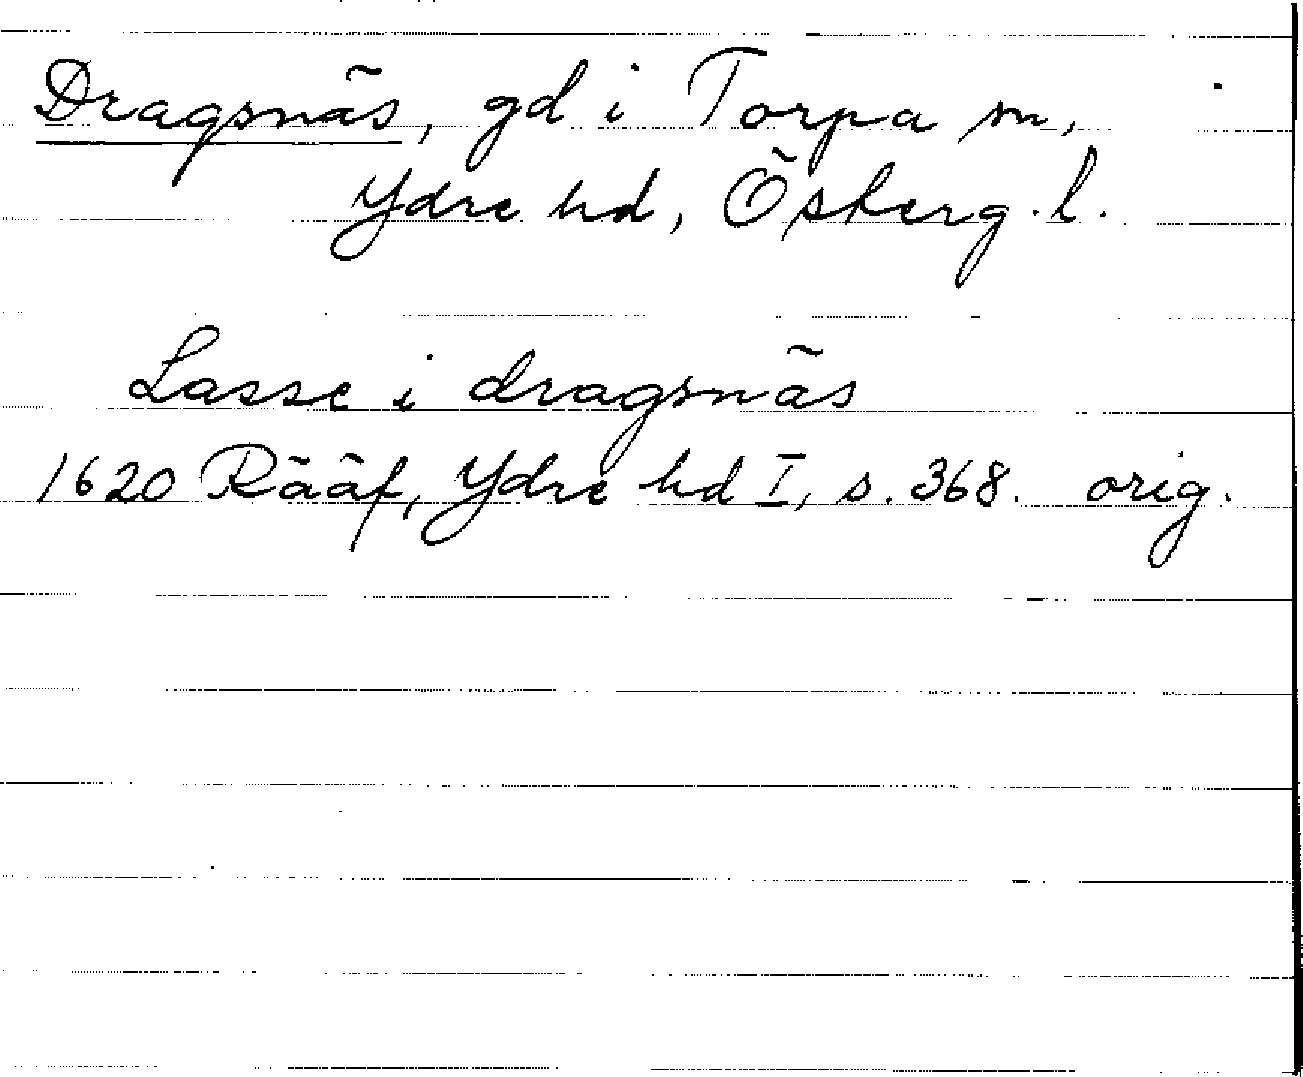 Dragsnäs, gd i Torpa sn,
Ydre hd, Österg. l.
Lasse i dragsnäs
1620 Rääf, Ydre hd I, s. 368. orig.